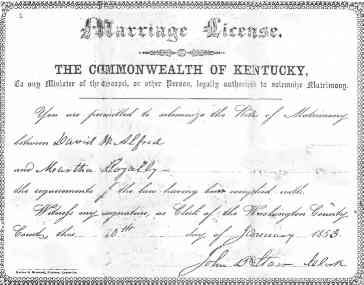 Marriage License.
THE COMMONWEALTH OF KENTUCKY,
To any Minister of the Gospel, or other Person, legally authorized to solemnize Matrimony.
You are permitted to solemnize the Rite of Matrimony
between David W Alford
and Martha Royalty
the requirements of the law having been complied with.
Witness my signature, as Clerk of the Washington County
Court, this 10th day of January 1853
John Clerk